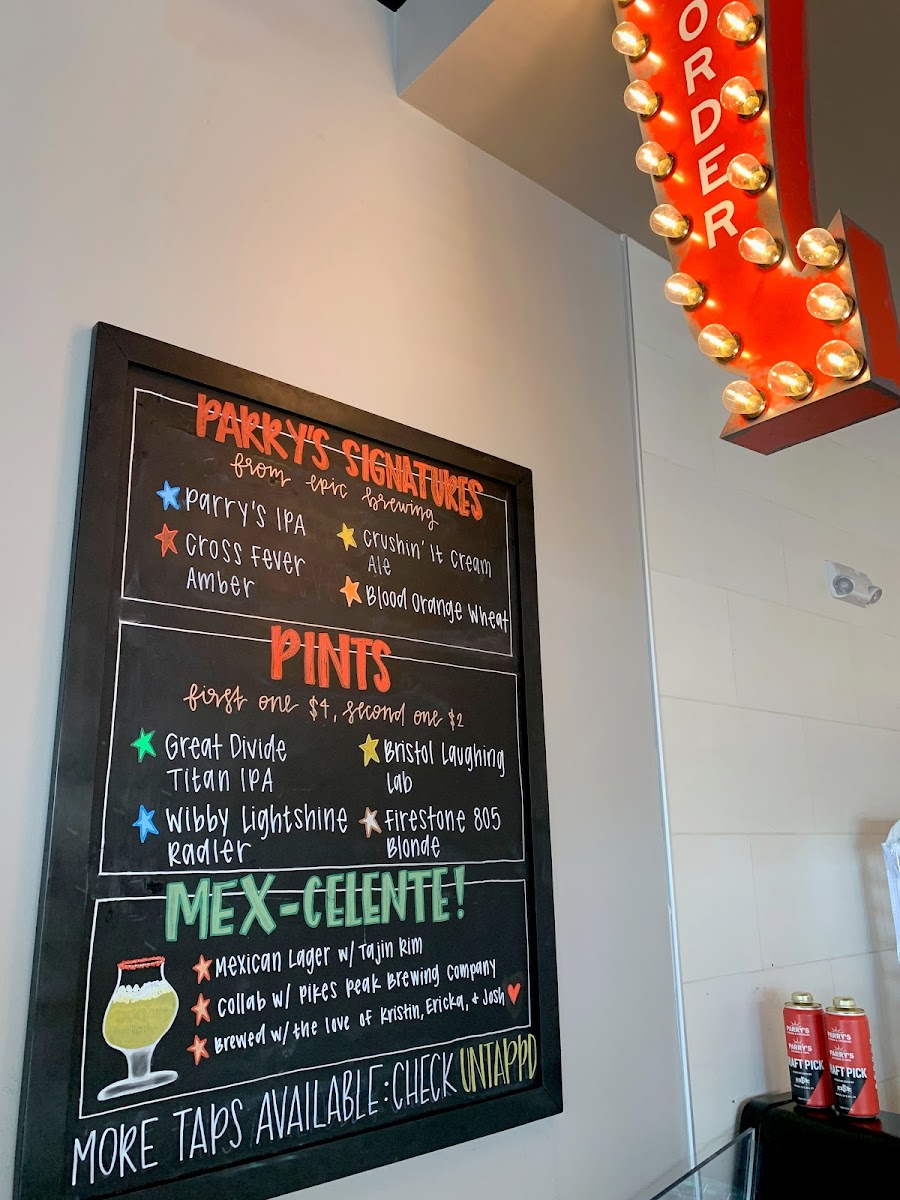 ORDER
PARRY'S SIGNATURES
from epic brewing
Parry's IPA
Cross Fever
Amber
Crushin' It Cream
Ale
Blood Orange Wheat
PINTS
first one $4, second one $2
Great Divide
Titan IPA
Wibby Lightshine
Radler
Bristol Laughing
Lab
Firestone 805
Blonde
MEX-CELENTE!
Mexican Lager w/ Tajin Rim
Collab w/ Pikes Peak Brewing Company
Brewed w/ the love of Kristin, Ericka, + Josh
MORE TAPS AVAILABLE: CHECK UNTAPPD
PARRY'S
PARRY'S
AFT PICK
PARRY'S
PARRY'S
RAFT PICK